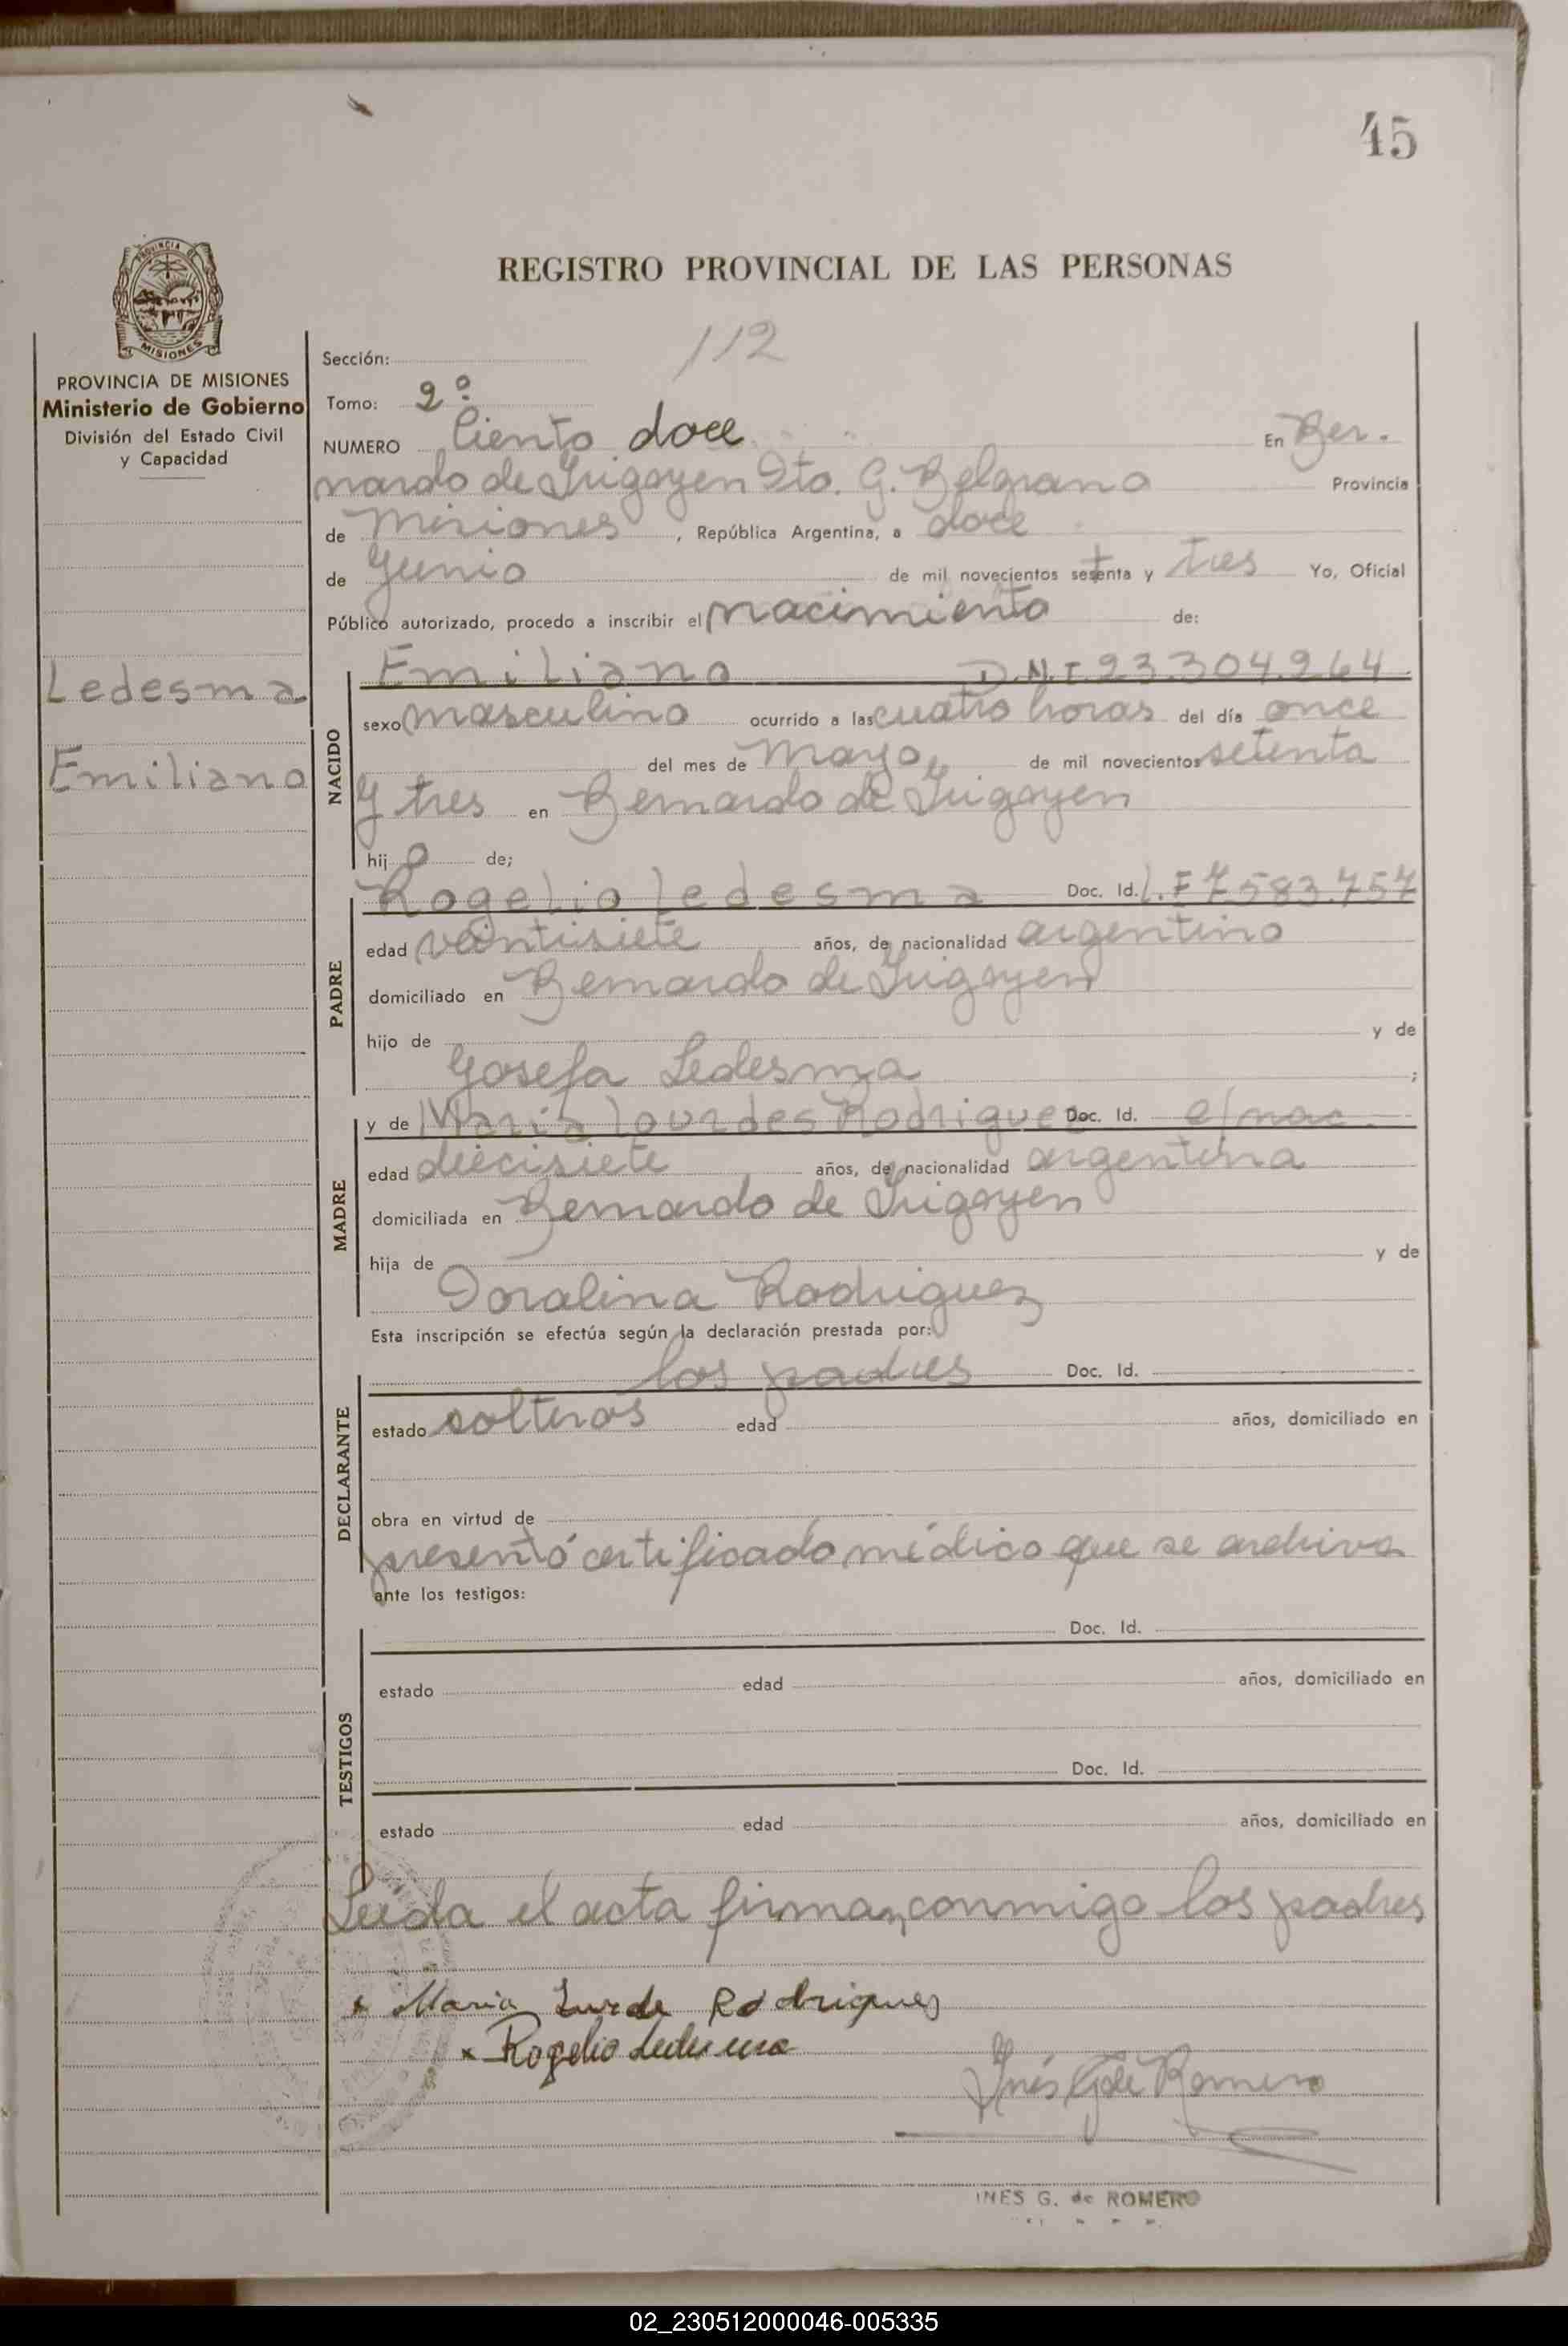 45
REGISTRO PROVINCIAL DE LAS PERSONAS
PROVINCIA
MISIONES
PROVINCIA DE MISIONES
Ministerio de Gobierno
División del Estado Civil
y Capacidad
Ledesma
Emiliano
112
Sección:
Tomo: 2º
NUMERO Ciento doce En Ber.
nardo de Irigoyen Dto. G. Belgrano Provincia
de Misiones, República Argentina, a doce
de Junio de mil novecientos setenta y tres Yo, Oficial
Público autorizado, procedo a inscribir el nacimiento de:
NACIDO
Emiliano D.N.I. 23.304.264
sexo masculino ocurrido a las cuatro horas del día once
del mes de Mayo, de mil novecientos setenta
y tres en Bernardo de Irigoyen
hijo de;
PADRE
Rogelio Ledesma Doc. Id. L.E 7583.757
edad veintisiete años, de nacionalidad argentino
domiciliado en Bernardo de Irigoyen
hijo de y de
Josefa Ledesma ;
MADRE
y de Maria Lourdes Rodriguez Doc. Id. c/nac
edad diecisiete años, de nacionalidad argentina
domiciliada en Bernardo de Irigoyen
hija de y de
Doralina Rodriguez
Esta inscripción se efectúa según la declaración prestada por:
DECLARANTE
los padres Doc. Id.
estado solteros edad años, domiciliado en
obra en virtud de
presentó certificado médico que se archiva
ante los testigos:
TESTIGOS
Doc. Id.
estado edad años, domiciliado en
Doc. Id.
estado edad años, domiciliado en
Leida el acta firman conmigo los padres
x Maria Lurde Rodriguez
x Rogelio Ledesma
Inés G de Romero
INES G. de ROMERO
02_230512000046-005335